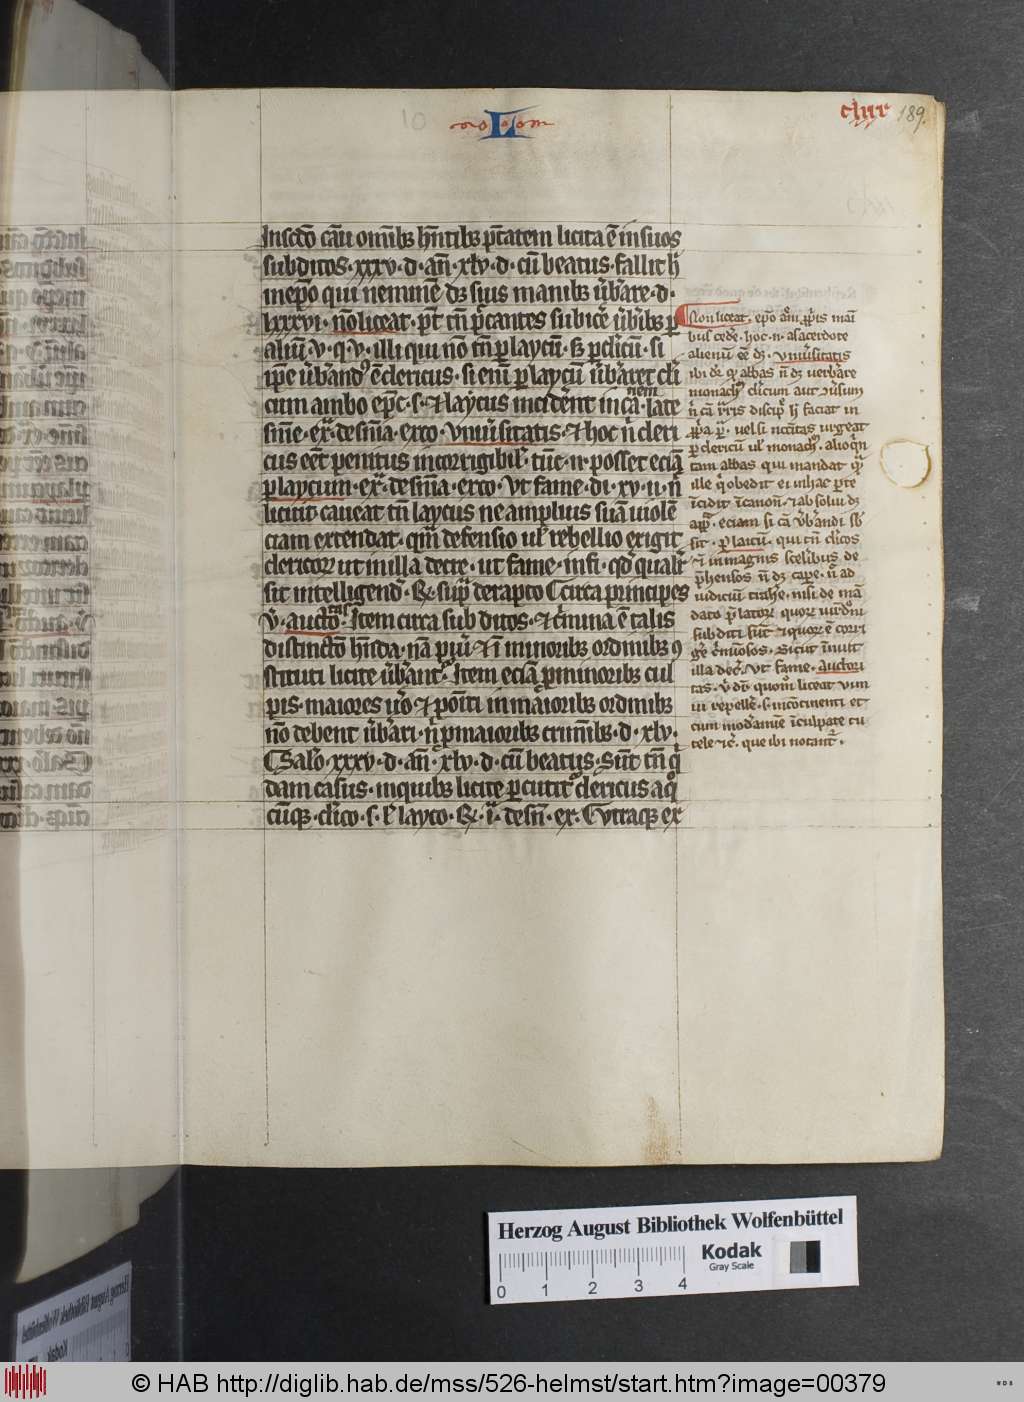 L
clxx 189.
In scdo cāu omībꝫ hn̄tibꝫ ptātem licita ē in suos
subditos · xxxv · d · an̄ · xlv · d · cū beatus · fallit h̄
in epō qui neminē dꝫ suis manibꝫ ūb̄are · d ·
lxxxvi · nō liceat · pt̄ tn̄ p̄cantes subicē ūb̄ibꝫ p
aliū · v · q · v · illi qui nō tn̄ p laycū · sꝫ p cl̓icū · si
ip̄e ūb̄andꝰ ē clericus · si enī p laycū ūb̄aret cl̓i
cum ambo ep̄c · s · ⁊ laycus incider̄nt in cā nem · late
sn̄ie · ex̄ · de sn̄ia · exco · vniūsitatis · ⁊ hoc n̄ cleri
cus eēt penitus incorrigibil̓ · tūc · n · posset eciā
p laycum · ex̄ · de sn̄ia · exco · vt fame · di · xv · ii · n̄
licuit caueat tn̄ laycus ne amplius suā uiolē
ciam extendat · qm̄ defensio ul̓ rebellio exigit
clericoꝝ ut in illa decre · ut fame · infi · qd̓ qualr̄
sit intelligend̓ · R̄ · sup̄ de rapto C circa principes
v̄ · auctoritas · Item circa subditos · ⁊ c̄mina ē talis
distinctō hn̄da · nā piū · ⁊ ī minoribꝫ ordinibꝫ ꝯ
stituti licite ūb̄ant̓ · Item eciā p minoribꝫ cul
pis · maiores ūo ⁊ pōiti in maioribꝫ ordinibꝫ
nō debent ūb̄ari · n̄ p maioribꝫ crimībꝫ · d · xlv ·
C Salō · xxxv · d · an̄ · xlv · d · cū beatus · Sūt tn̄ q̄
dam casus · in quibꝫ licite pcutit̓ clericus a qo
cūqꝫ · cl̓ico · s · l̓ layco · R̄ · i · de sn̄ · ex · C vtraqꝫ ex
Non liceat · epō · aīm · ꝓp̄is mai
bus cede · hoc · n · a sacerdote
alienū eē dꝫ · vniūsitatis
ibi dr̄ · qꝭ abbas n̄ dꝫ verb̄are
monachꝫ cl̓icum aut 9ūsum
n̄ cā ūris discip̄ · h̄ faciat in
ꝓp̄a p̄ · uel si nc̄itas urgeat
p clericū ul̓ monachꝫ · alioq̄n
tam abbas qui mandat qꝫ
ille q̓ obedit ei in hac p̄te
īcidit īcanoē · ⁊ absolui dꝫ
sit · p laicū · qui tn̄ cl̓icos
⁊ in magnis scelībꝫ de
p̄hensos n̄ dꝫ cape · n̄ ad
iudiciū trahe · nisi de mā
dato p̄latoꝝ quoꝝ
subditi sūt ⁊ quoꝝ ē corri
ge c̄minosos · Sicut inuit̓
illa dec̄ · vt fame · Auctori
tas · v̄ dr̄ quom̄ liceat vim
ui repelle · s · incontinenti et
cum mod̓amie īculpate tu
tele ⁊c̄ · que ibi notant̓ ·
Herzog August Bibliothek Wolfenbüttel
Kodak
Gray Scale
0 1 2 3 4
© HAB http://diglib.hab.de/mss/526-helmst/start.htm?image=00379